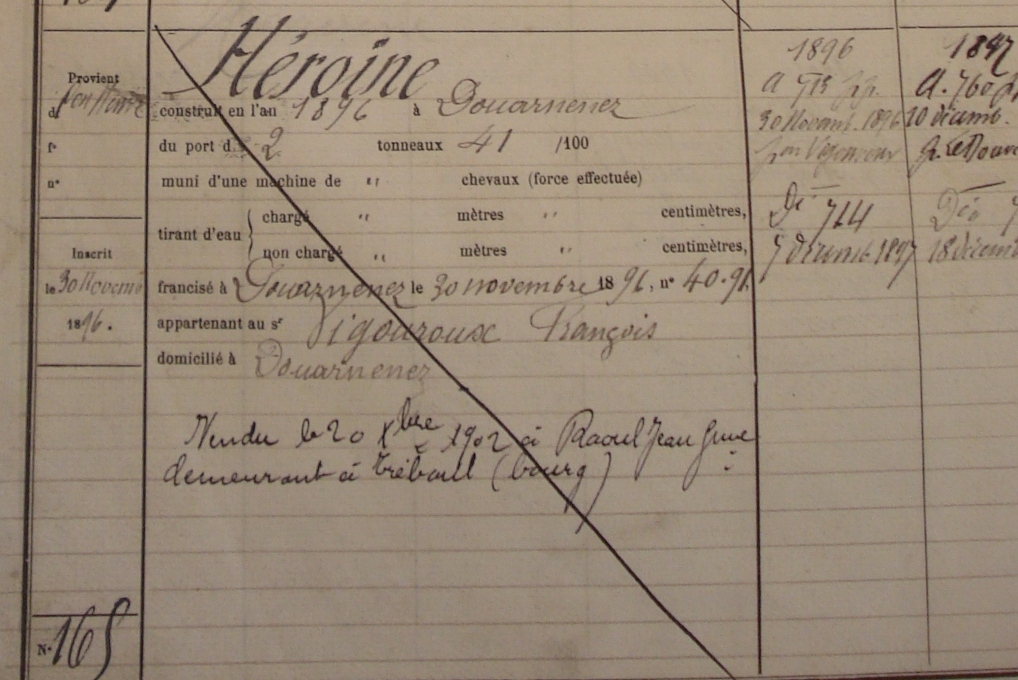 Provient
d
f°
n°
Inscrit
le 30 Novemb
1896.
N° 165
Héroïne
construit en l'an 1896 à Douarnenez
du port de 2 tonneaux 41 /100
muni d'une machine de " chevaux (force effectuée)
tirant d'eau { chargé " mètres " centimètres,
non chargé " mètres " centimètres,
francisé à Douarnenez le 30 novembre 1896, n° 40.91
appartenant au sr Vigouroux François
domicilié à Douarnenez
Vendu le 20 Xbre 1902 à Raoul Jean
demeurant à tréboul (bourg)
1896
30 Novemb. 1896
Vigouroux
714
7 Décemb 1897
1897
A. 760
10 décemb.
18 décemb